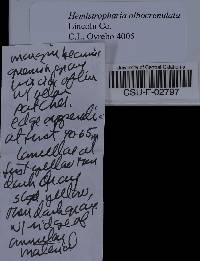 Hemistropharia albocrenulata
Lincoln Co.
C.L. Ovrebo 4005
University of Central Oklahoma
CSU-F-02797
margin becoming
greenish gray
w/
patches.
edge appendic-
at first 40-65 m
Lamellae at
first yellow then
dark gray
stipe yellow,
then dark gray
w/ ridge of
annular
material